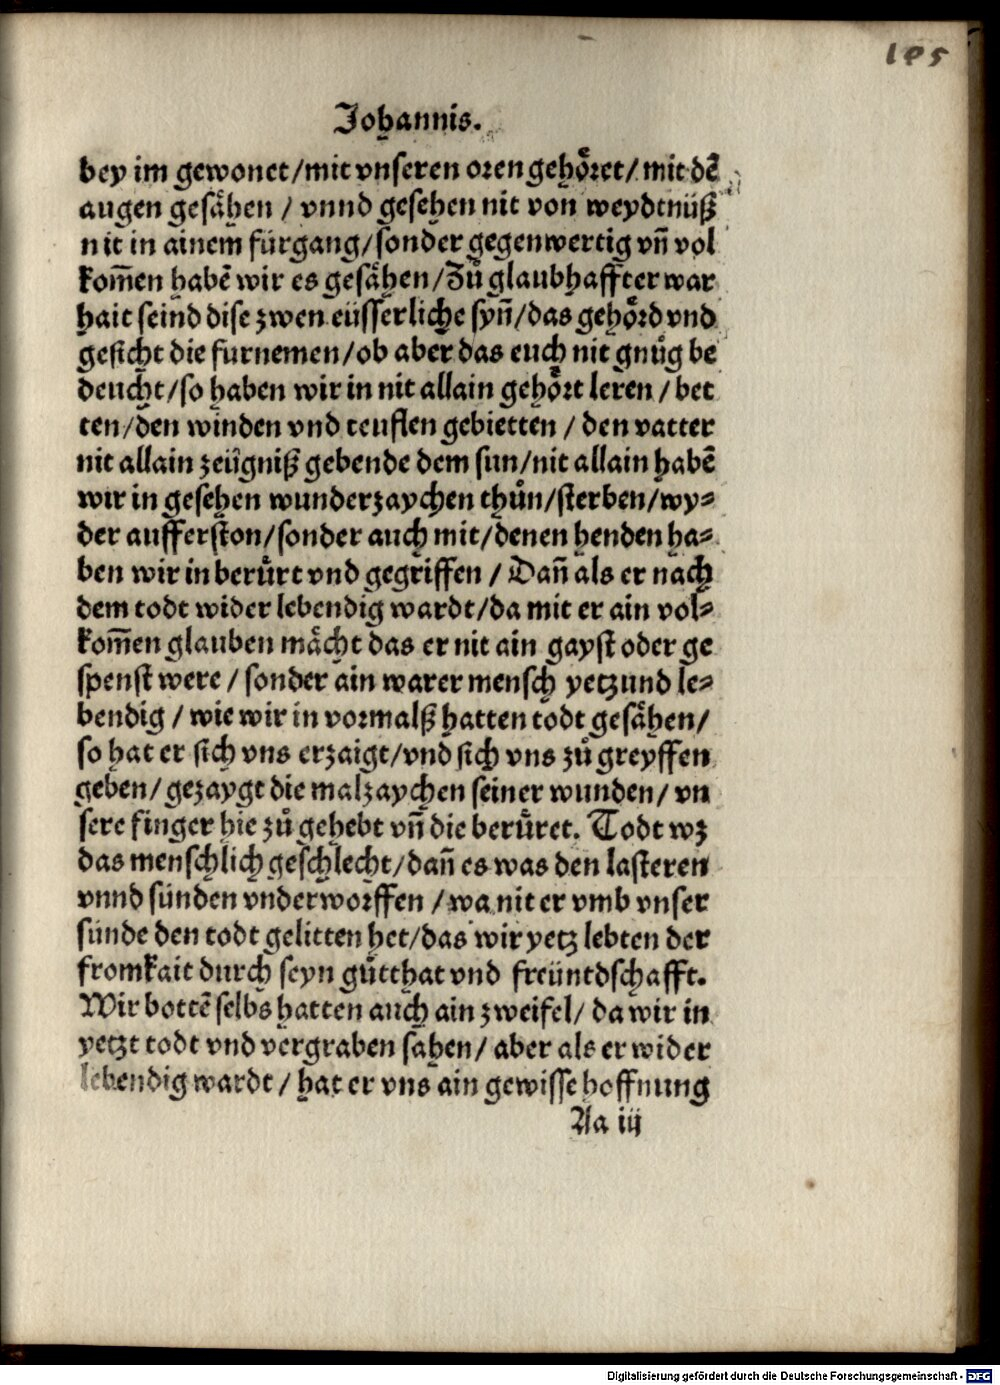 195
Johannis.
bey im gewonet/mit vnseren oren gehoͤret/mit dē
augen gesaͤhen / vnnd gesehen nit von weydtnüß
nit in ainem fürgang/sonder gegenwertig vn̄ vol
kom̄en habē wir es gesaͤhen/Zuͦ glaubhaffter war
hait seind dise zwen eüsserliche syn̄/das gehoͤrd vnd
gesicht die furnemen/ob aber das euch nit gnuͦg be
deucht/so haben wir in nit allain gehoͤrt leren/bet
ten/den winden vnd teuflen gebietten / den vatter
nit allain zeügniß gebende dem sun/nit allain habē
wir in gesehen wunderzaychen thuͦn/sterben/wy⸗
der aufferston/sonder auch mit/denen henden ha⸗
ben wir in beruͤrt vnd gegriffen / Dan̄ als er nach
dem todt wider lebendig wardt/da mit er ain vol⸗
kom̄en glauben maͤcht das er nit ain gayst oder ge
spenst were / sonder ain warer mensch yetzund le⸗
bendig / wie wir in vormalß hatten todt gesaͤhen/
so hat er sich vns erzaigt/vnd sich vns zuͦ greyffen
geben/ gezaygt die malzaychen seiner wunden/ vn
sere finger hie zuͦ gehebt vn̄ die beruͤret. Todt wz
das menschlich geschlecht/dan̄ es was den lasteren
vnnd sünden vnderworffen / wa nit er vmb vnser
sünde den todt gelitten het/das wir yetz lebten der
fromkait durch seyn guͤtthat vnd freüntdschafft.
Wir bottē selbs hatten auch ain zweifel/ da wir in
yetzt todt vnd vergraben sahen/ aber als er wider
lebendig wardt / hat er vns ain gewisse hoffnung
Aa iij
Digitalisierung gefördert durch die Deutsche Forschungsgemeinschaft - DFG